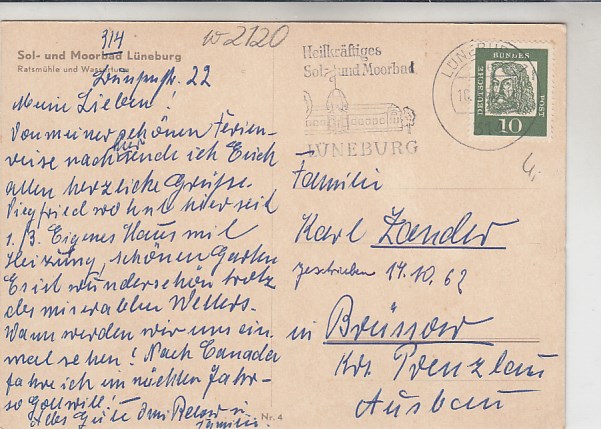 314
w 2120
Sol- und Moorbad Lüneburg
Ratsmühle und Wasserturm
22
Meine Lieben!
Von meiner schönen Ferien-
reise nach hier sende ich Euch
allen herzliche Grüsse.
Siegfried wohnt hier seit
1./3. Eigenes Haus mit
Heizung, schönen Garten
Es ist wunderschön trotz
des miserablen Wetters.
Wann werden wir uns ein-
mal sehen! Nach Canada
fahre ich im nächsten Jahr-
so Gott will!
Alles Gute Omi
Familie
Nr. 4
Heilkräftiges
Sol- und Moorbad
LÜNEBURG
LÜNEBURG
DEUTSCHE BUNDES POST
10
Familie
Karl Zander
geschrieben 14.10.62
in Brüssow
Krs. Prenzlau
Ausbau